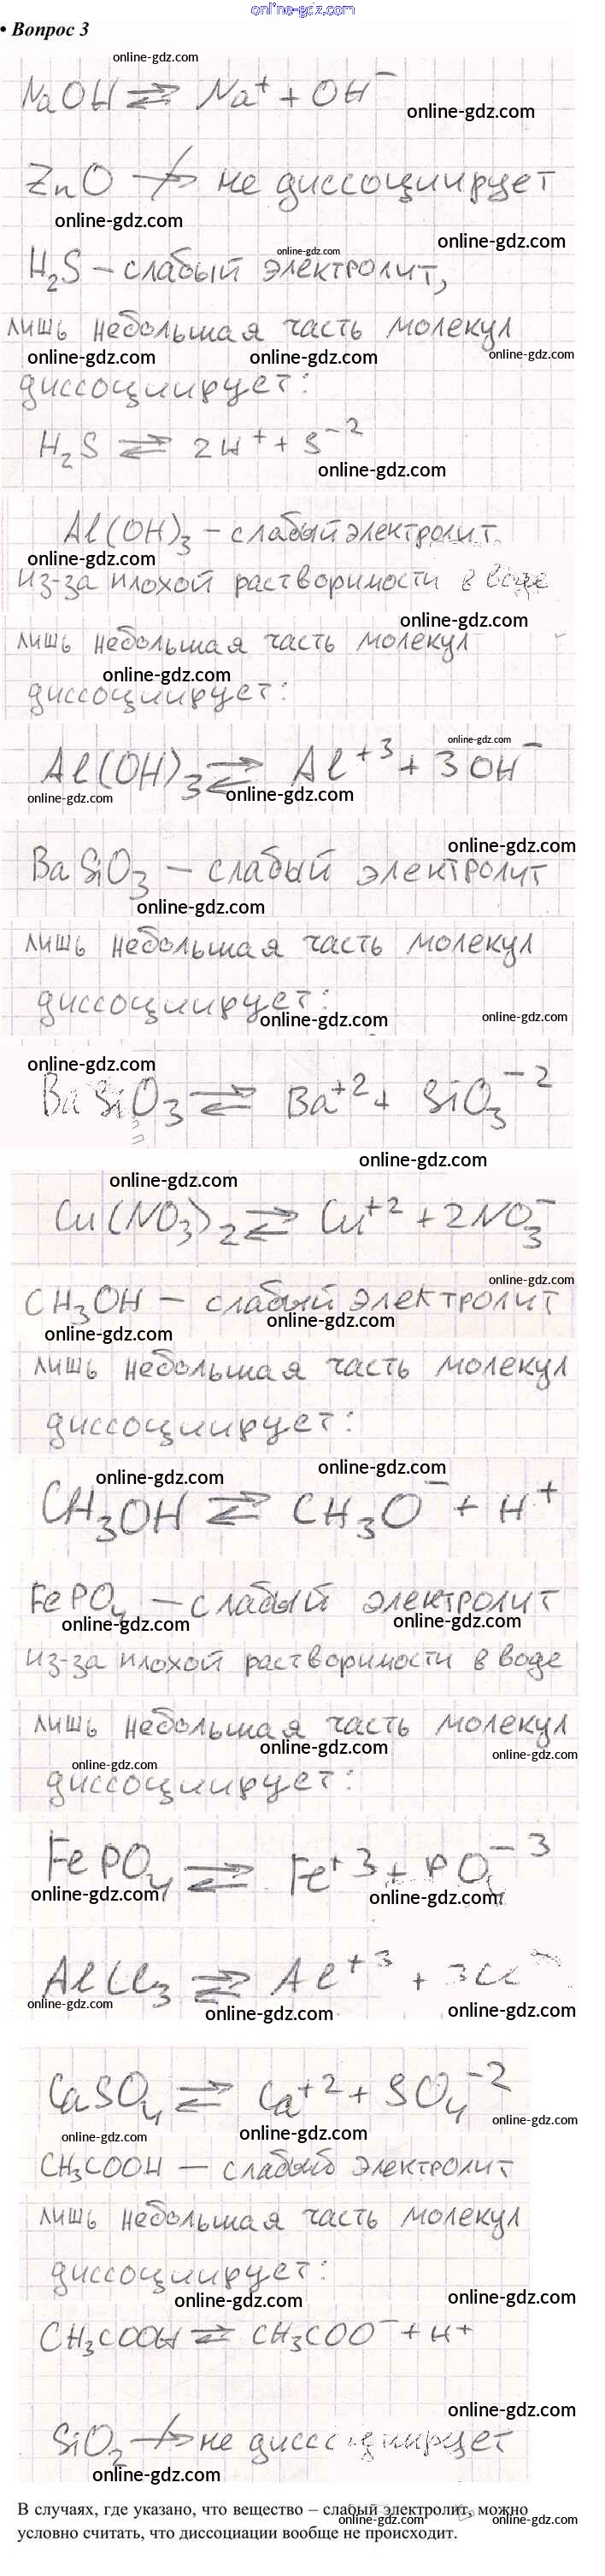 online-gdz.com
• Вопрос 3
online-gdz.com
NaOH ⇄ Na⁺ + OH⁻
online-gdz.com
ZnO ↛ не диссоциирует
online-gdz.com
online-gdz.com
online-gdz.com
H₂S – слабый электролит,
лишь небольшая часть молекул
online-gdz.com online-gdz.com online-gdz.com
диссоциирует:
H₂S ⇄ 2H⁺ + S⁻²
online-gdz.com
Al(OH)₃ – слабый электролит
online-gdz.com
из-за плохой растворимости в воде
online-gdz.com
лишь небольшая часть молекул
online-gdz.com
диссоциирует:
online-gdz.com
Al(OH)₃ ⇄ Al⁺³ + 3OH⁻
online-gdz.com online-gdz.com
online-gdz.com
BaSiO₃ – слабый электролит
online-gdz.com
лишь небольшая часть молекул
диссоциирует:
online-gdz.com online-gdz.com
online-gdz.com
BaSiO₃ ⇄ Ba⁺² + SiO₃⁻²
online-gdz.com
online-gdz.com
Cu(NO₃)₂ ⇄ Cu⁺² + 2NO₃⁻
online-gdz.com
CH₃OH – слабый электролит
online-gdz.com online-gdz.com
лишь небольшая часть молекул
диссоциирует:
online-gdz.com online-gdz.com
CH₃OH ⇄ CH₃O⁻ + H⁺
FePO₄ – слабый электролит
online-gdz.com online-gdz.com
из-за плохой растворимости в воде
лишь небольшая часть молекул
online-gdz.com online-gdz.com
online-gdz.com
диссоциирует:
FePO₄ ⇄ Fe⁺³ + PO₄⁻³
online-gdz.com online-gdz.com
AlCl₃ ⇄ Al⁺³ + 3Cl⁻
online-gdz.com online-gdz.com online-gdz.com
CaSO₄ ⇄ Ca⁺² + SO₄⁻²
online-gdz.com
online-gdz.com online-gdz.com
CH₃COOH – слабый электролит
лишь небольшая часть молекул
диссоциирует:
online-gdz.com online-gdz.com
CH₃COOH ⇄ CH₃COO⁻ + H⁺
online-gdz.com
SiO₂ ↛ не диссоциирует
online-gdz.com
В случаях, где указано, что вещество – слабый электролит, можно
online-gdz.com online-gdz.com
условно считать, что диссоциации вообще не происходит.